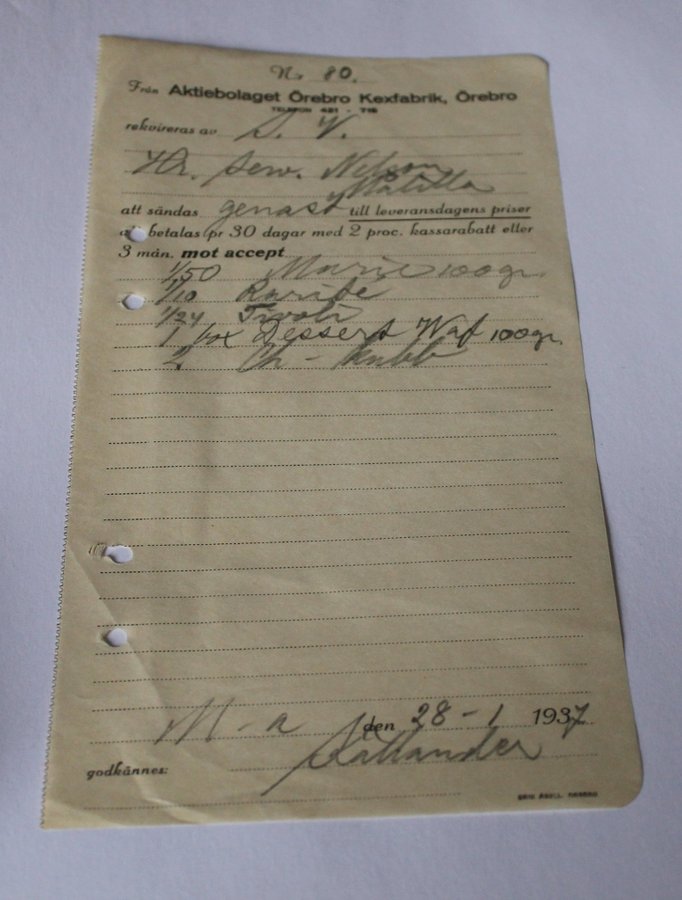 No 80.
Från Aktiebolaget Örebro Kexfabrik, Örebro
TELEFON 421 - 716
rekvireras av S. V.
Hr. Serv. Nelson
att sändas genast till leveransdagens priser
att betalas pr 30 dagar med 2 proc. kassarabatt eller
3 mån. mot accept
1/50 Marie 100 gr.
1/10
1/24 Tivoli
1 box Dessert Waf 100 gr.
2 Ch - Knibb
M - a den 28 - 1 1937
godkännes: